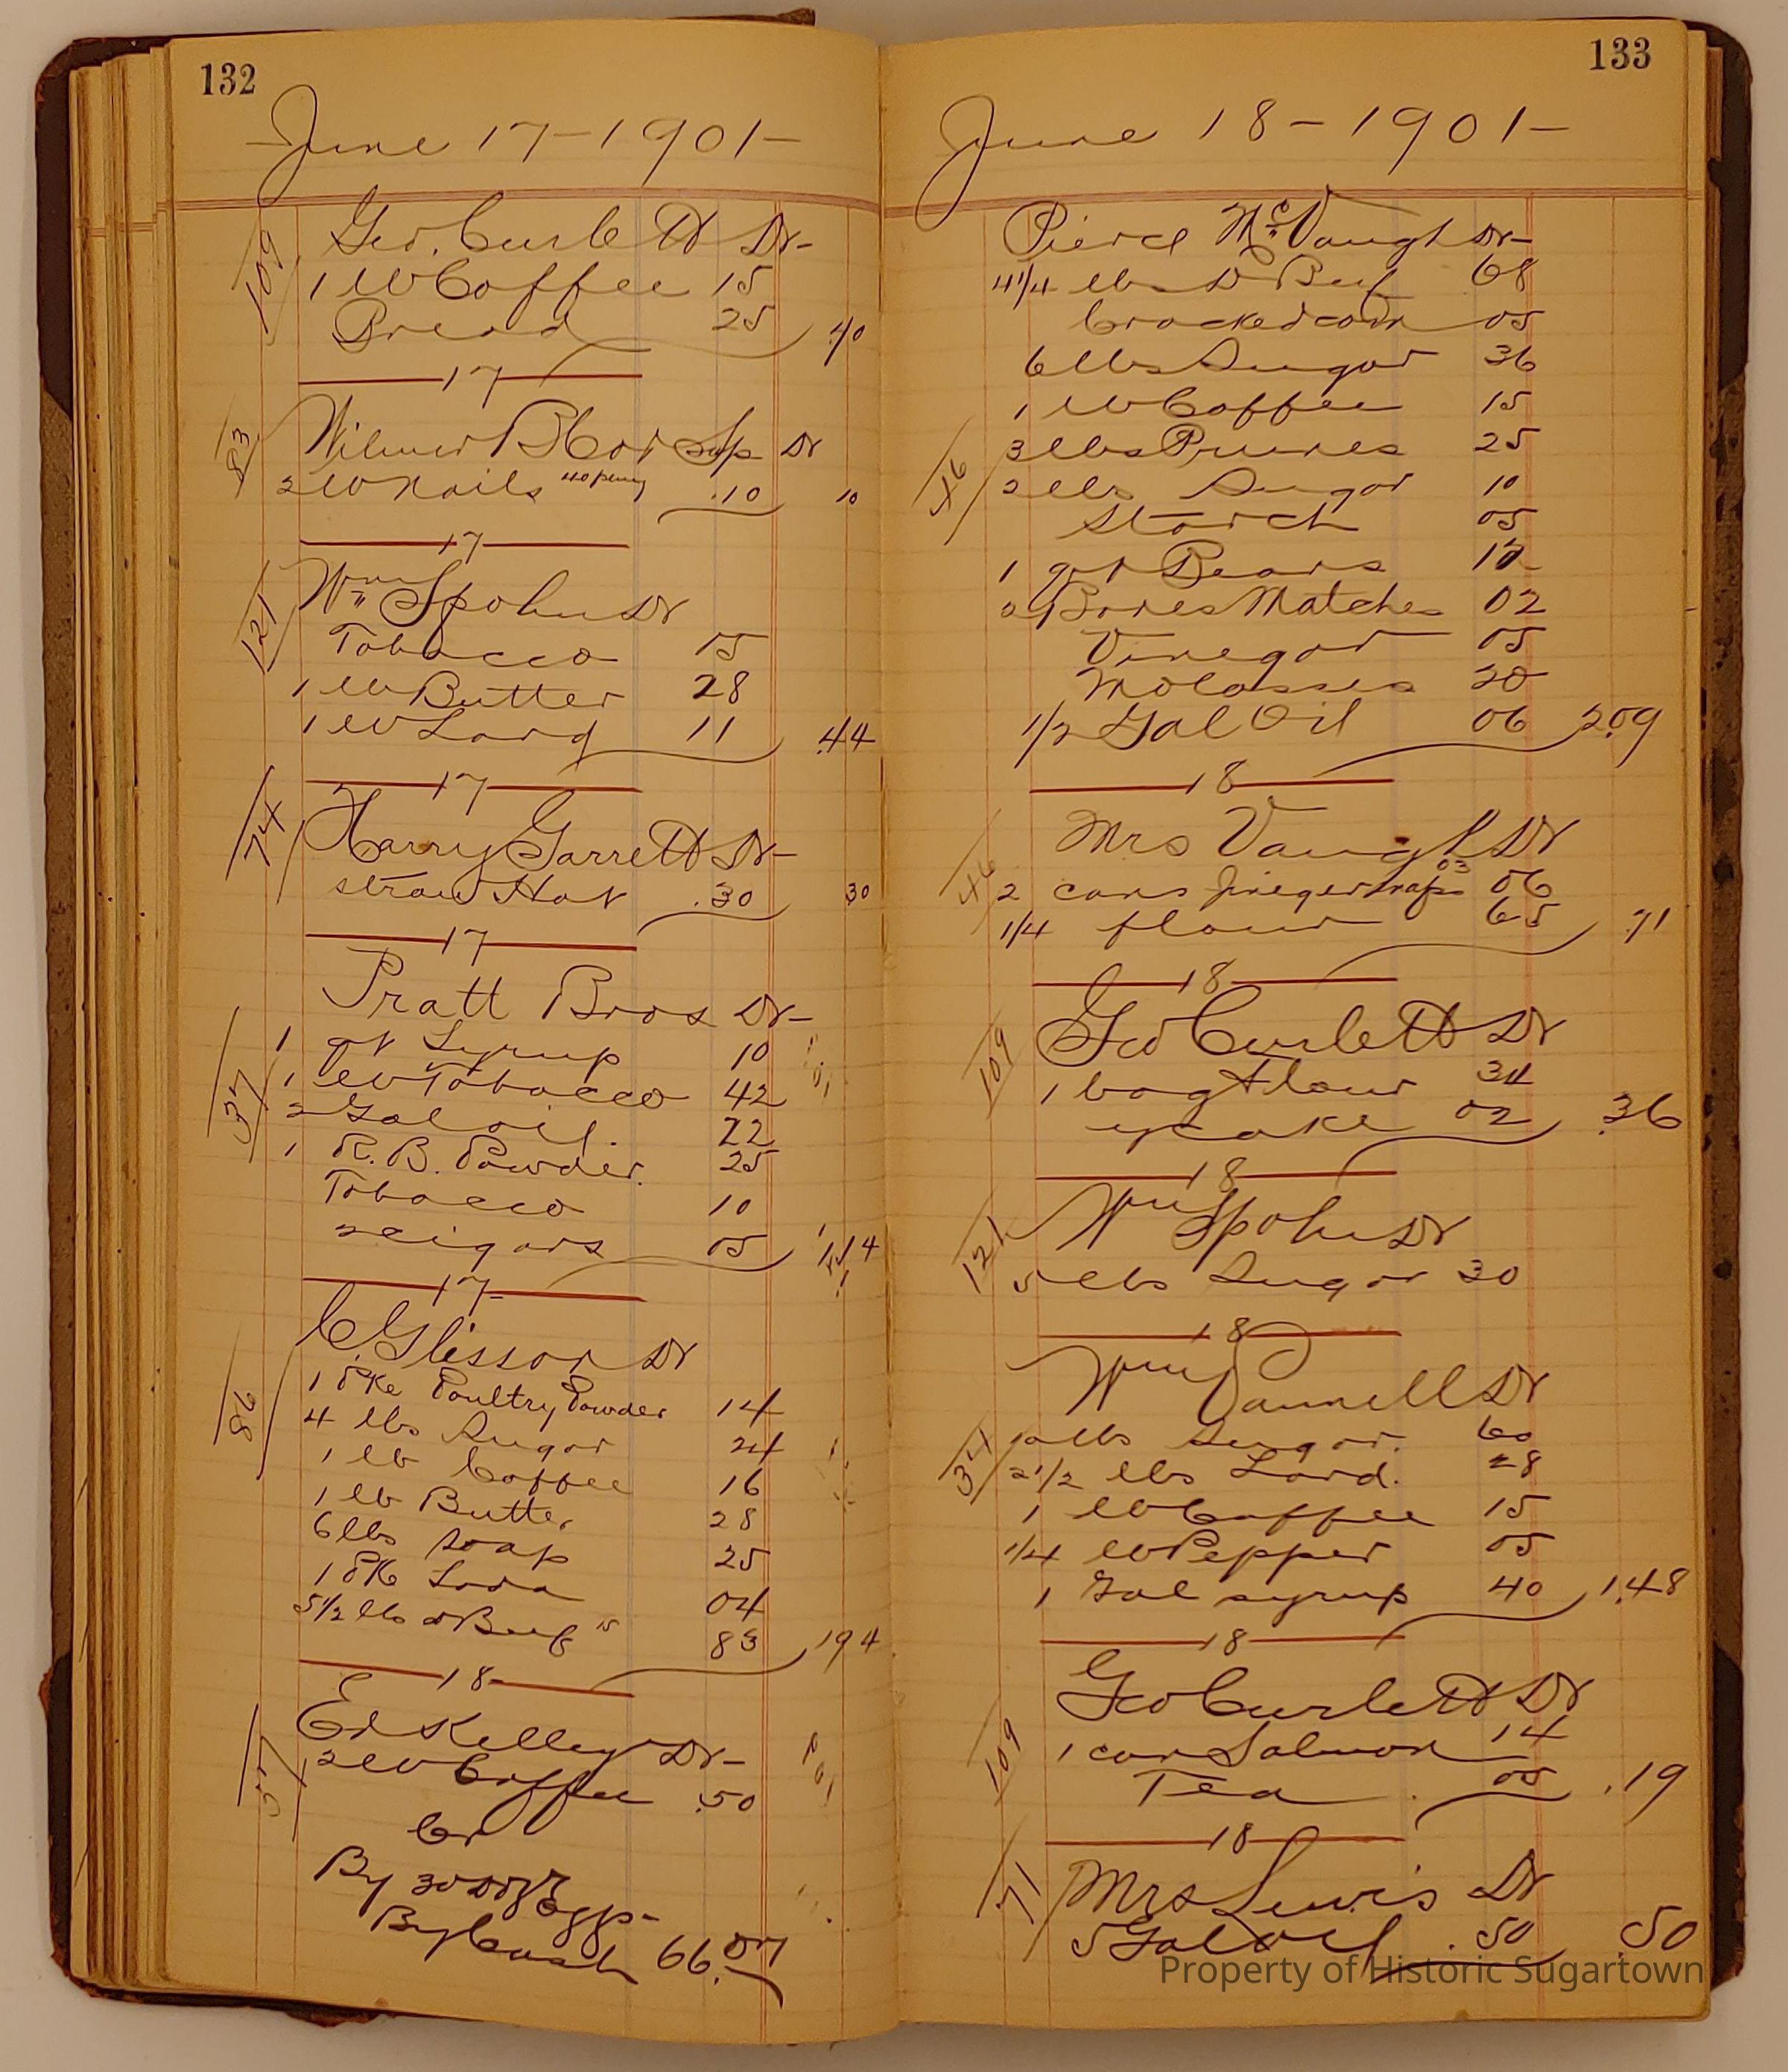 132
June 17-1901-
109 Geo. Curlett Dr-
1 lb Coffee 15
Bread 25 .40
17
83 Wilmer Dr
2 lb Nails 40 penny .10 10
17
121 Wm Spohn Dr
Tobacco 15
1 lb Butter 28
1 lb Lard 11 .44
17
74 Harry Garrett Dr-
straw Hat .30 30
17
Pratt Bros Dr-
1 qt Syrup 10
37 1 lb Tobacco 42
2 Gal oil. 22
1 R.B. Powder. 25
Tobacco 10
2 cigars 05 1.14
17-
C. Glisson Dr
1 Pke Poultry Powder 14
86 4 lbs Sugar 24
1 lb Coffee 16
1 lb Butter 28
6 lbs soap 25
1 Pk Soda 04
5 1/2 lbs d Beef 15 83 194
18-
57 Ed Kelley Dr-
2 lb Coffee .50
Cr
By 30 Doz Eggs-
By Cash 66.07
133
June 18-1901-
Pierce McVaugh Dr-
4 1/4 lbs D Beef 68
Cracked corn 05
6 lbs Sugar 36
1 lb Coffee 15
46 3 lbs Prunes 25
2 lbs Sugar 10
Starch 05
1 qt Beans 12
2 Boxes Matches 02
Vinegar 05
Molasses 20
1/2 Gal Oil 06 2.09
18
Mrs Vaugh Dr
46 2 cans ginger snaps 03 06
1/4 flour 65 .71
18
109 Geo Curlett Dr
1 bag Flour 34
y cake 02 .36
18
121 Wm Spohn Dr
5 lbs Sugar 30
18
Wm Dr
34 10 lbs Sugar. 60
2 1/2 lbs Lard. 28
1 lb Coffee 15
1/4 lb Pepper 05
1 Gal syrup 40 1.48
18
109 Geo Curlett Dr
1 can Salmon 14
Tea 05 .19
18
71 Mrs Lewis Dr
5 Gal oil .50 50
Property of Historic Sugartown